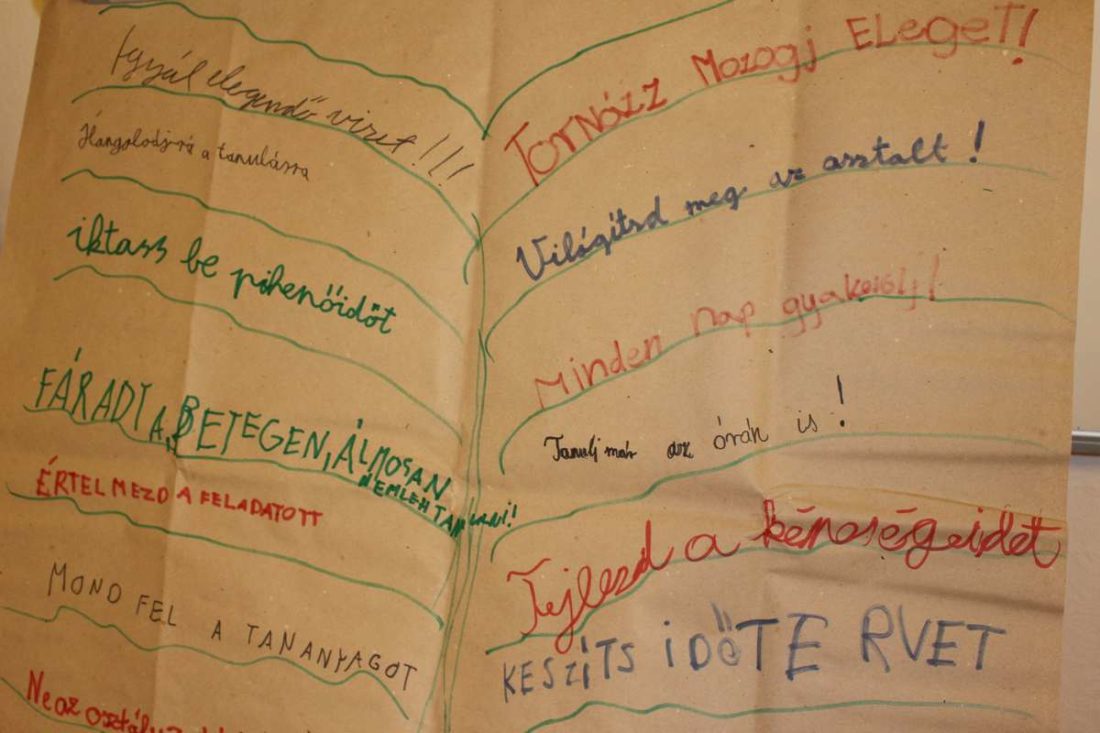 Igyál elegendő vizet!!!
Hangolodj rá a tanulásra
iktass be pihenőidőt
FÁRADTA,BETEGEN,ÁLMOSAN
NEMLEH TANULNI!
ÉRTELMEZD A FELADATOTT
MOND FEL A TANANYAGOT
Ne az
TORNÁZZ MOZOgj ELEgeT!
Világítsd meg az asztalt!
Minden nap gyakorolj!
Tanulj már az órán is!
Fejlezd a képeségeidet
KESZÍTS iDŐTERVET